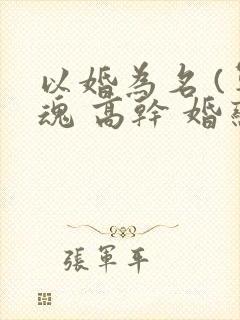 以婚為名(
魂 高幹 婚
張軍平